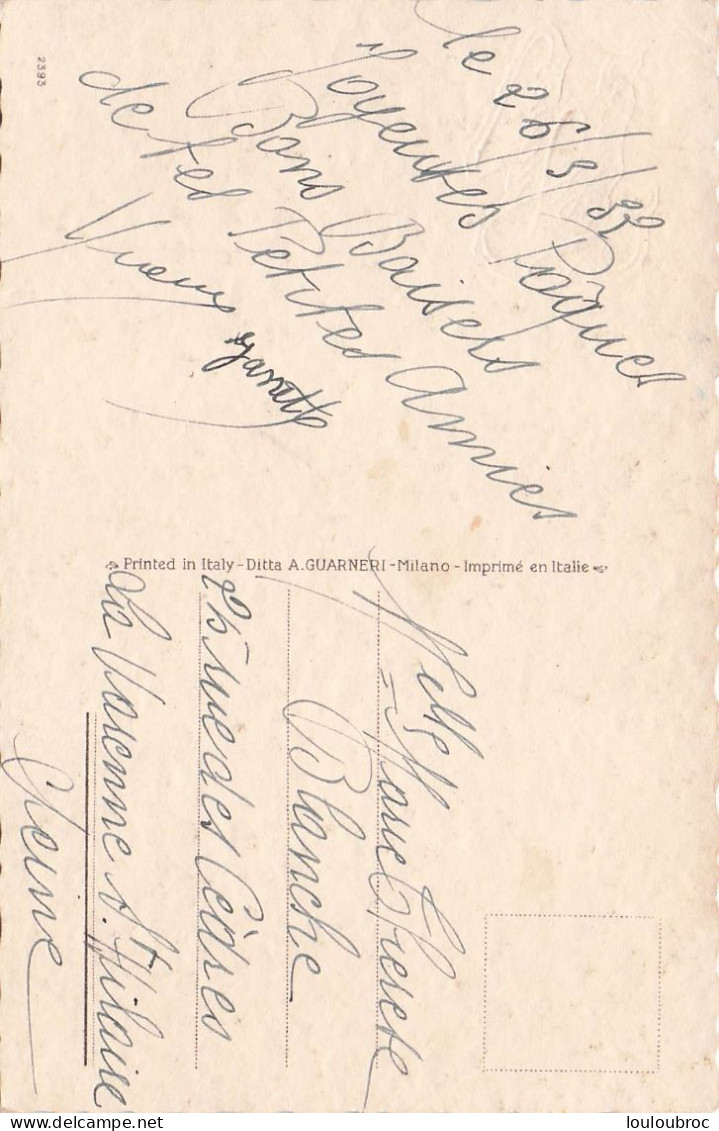 le 26/3/32
Joyeuses Pâques
Bons Baisers
de tes Petites Amies
Printed in Italy - Ditta A. GUARNERI - Milano - Imprimé en Italie
Melle Marie Thérèse
Blanche
rue des Cèdres
La Varenne St Hilaire
Seine
2393
delcampe.net
louloubroc